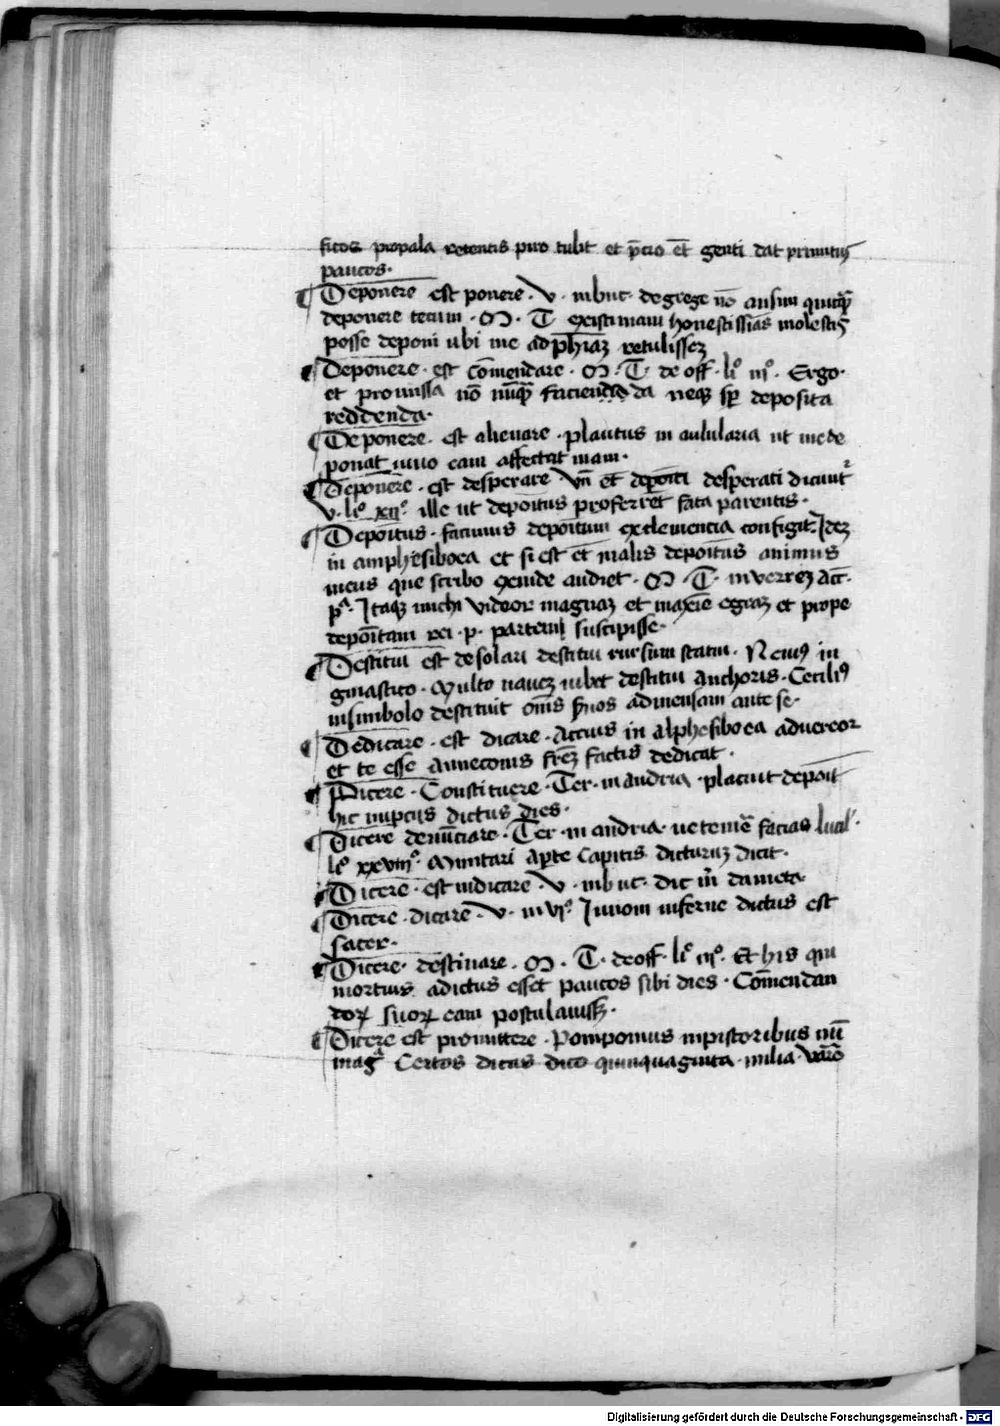 ficos propala retentis puro tulit et p̄cio et̄ genti dat primitꝰ
paucos·
Deponere est ponere · v · in buc· de grege nō ausim quicq̄
deponere tecum · M · T existimam honestissiās molestiꝰ
posse deponi ubi me ad ph̄iaꝫ retulisseꝫ
Deponere · est cōmendare · M · T· de off· liº iijº· Ergo·
et promissa nō nūq̄ facienda da neqꝫ sp̄ deposita
reddenda·
Deponere · est alienare · plautus in aulularia ut me de
ponat uino eam affectat uiam·
Deponere · est desperare vn̄ et depoīti desperati dicunt᷑
v · liº xijº ille ut depoītus proferret fata parentis ·
Depoītus · facimus depoītum ex clementia configit · Ideꝫ
in amphesiboea et si est et malis depoītus animus
meus que scribo exinde audiet · M · T· in verreꝫ Act̄·
pª· Itaqꝫ michi videor magnaꝫ et maxīe egraꝫ et prope
depoītam rei · p · partem suscipisse·
Destitui est desolari destitui rursum statui · Neuiꝰ in
gmastico · Multo naueꝫ iubet destitui anchoris · Ceciliꝰ
in simbolo destituit om̄s ſ̄uos ad mensam ante se·
Dedicare · est dicare · Accius in alphesiboea aduereor
et te esse Ameconis fr̄eꝫ factis dedicat ·
Dicere · Constituere · Ter· in andria · placuit depoīt
hic nupcijs dictus dies·
Dicere denūciare · Ter· in andria· ne temē facias lucil'·
lº xxviijº · Minitari apte capitis dicturuꝫ dicit·
Dicere · est indicare · v · in buc· dic m̄ dameta·
Dicere · dicare · v · in vjº· Junoni inferne dictus est
sacer·
Dicere · destinare · M · T· de off· liº iijº· Et his qui
mortius adictus esset paucos sibi dies · Cōmendan
doꝝ suoꝝ eam postulauissꝫ·
Dicere est promittere · Pomponius in pistoribus nū
magꝭ Certos dicas dico quinquaginta · milia · varo